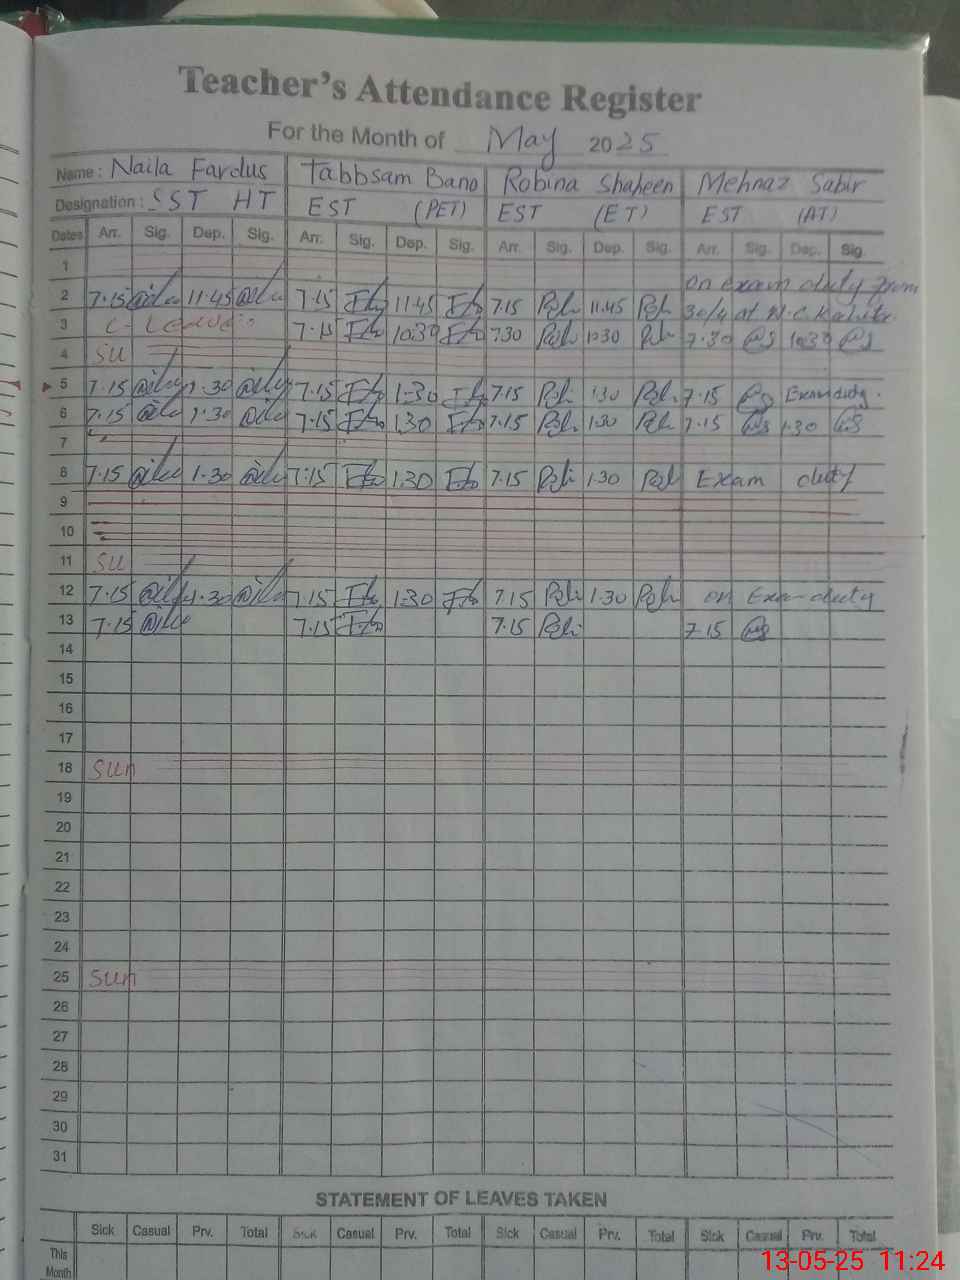 Teacher's Attendance Register
For the Month of May 2025
Name : Naila Fardus Tabbsam Bano Robina Shaheen Mehnaz Sabir
Designation : SST HT EST (PET) EST (ET) EST (AT)
Dates Arr. Sig. Dep. Sig. Arr. Sig. Dep. Sig. Arr. Sig. Dep. Sig. Arr. Sig. Dep. Sig.
1 on exam duty from
2 7.15 11.45 7.15 11.45 7.15 11.45 30/4 at
3 C-Leave 7.15 10:30 7.30 10:30 7.30 10:30
4 SU
5 7.15 1.30 7.15 1:30 7.15 1:30 7.15 Exam duty.
6 7.15 1.30 7.15 1.30 7.15 1.30 7.15 1.30
7
8 7.15 1.30 7:15 1.30 7.15 1.30 Exam duty
9
10
11 SU
12 7.15 1.30 7.15 1.30 7.15 1.30 on Exam duty
13 7.15 7.15 7.15 7.15
14
15
16
17
18 Sun
19
20
21
22
23
24
25 Sun
26
27
28
29
30
31
STATEMENT OF LEAVES TAKEN
Sick Casual Prv. Total Sick Casual Prv. Total Sick Casual Prv. Total Sick Casual Prv. Total
This
Month
13-05-25 11:24